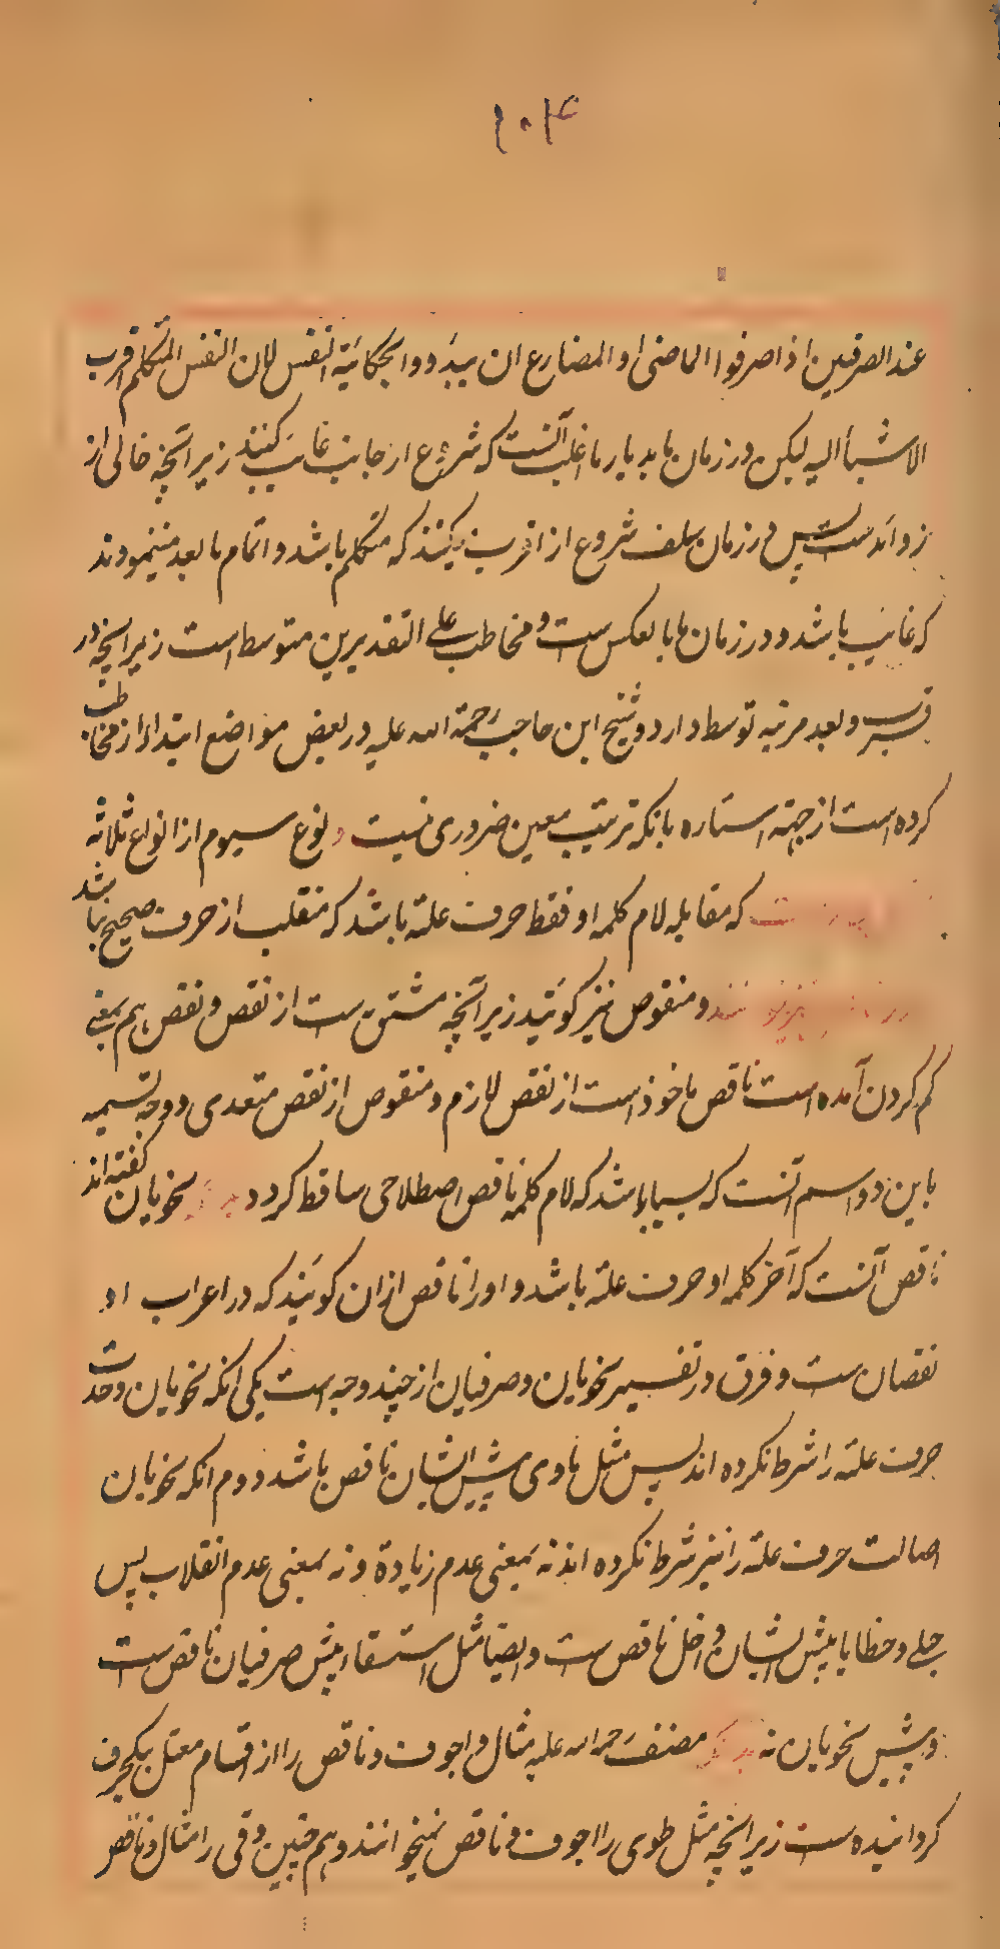 ۱۰۴
عند الصرفیین اذا صرفوا الماضی او المضارع ان یبدؤوا بحکایة النفس لان النفس المتکلم اقرب
الاشیاء الیه لیکن در زمان ما بدیار ما اغلب آنست که شروع از جانب غایب کنند زیرا آنچه خالی از
زوائدست پس در زمان سلف شروع از اقرب میکنند که متکلم باشد و اتمام بابعد مینمودند
که غایب باشد و در زمان ما بالعکس ست و مخاطب علی التقدیرین متوسط است زیرا آنچه در
قرب و بعد مرتبه توسط دارد و شیخ ابن حاجب رحمة الله علیه در بعض مواضع ابتدا از مخاطب
کرده است از جهة اشاره بانکه ترتیب معین ضروری نیست و نوع سیوم از انواع ثلاثه
که مقابله لام کلمه او فقط حرف علة باشد که منقلب از حرف صحیح نباشد
و منقوص نیز گویند زیرا آنچه مشتق ست از نقص و نقص هم بمعنی
کم کردن آمده است ناقص ماخوذ است از نقص لازم و منقوص از نقص متعدی و وجه تسمیه
باین دو اسم آنست که بسیار باشد که لام کلمه ناقص اصطلاحی ساقط گردد نحویان گفته اند
ناقص آنست که آخر کلمه او حرف علة باشد و او را ناقص ازان گویند که در اعراب او
نقصان ست و فرق در تفسیر نحویان و صرفیان از چند وجه است یکی انکه نحویان وحدت
حرف علة را شرط نکرده اند پس مثل ناوی پیش ایشان ناقص باشد دوم انکه نحویان
اصالت حرف علة را نیز شرط نکرده اند نه بمعنی عدم زیادة و نه بمعنی عدم انقلاب پس
حبلی و خطایا پیش ایشان داخل ناقص ست و ایضا مثل استسقاء پیش صرفیان ناقص ست
و پیش نحویان نه مصنف رحمه الله علیه مثال و اجوف و ناقص را از اقسام معتل بیکحرف
گردانیده ست زیرا آنچه مثل طوی را اجوف و ناقص نمیخوانند و هم چنین وقی را مثال و ناقص